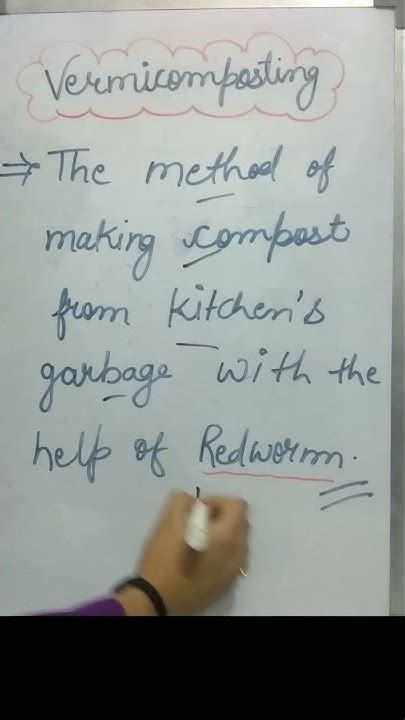 Vermicomposting
⇒ The method of
making compost
from Kitchen's
garbage with the
help of Redworm.